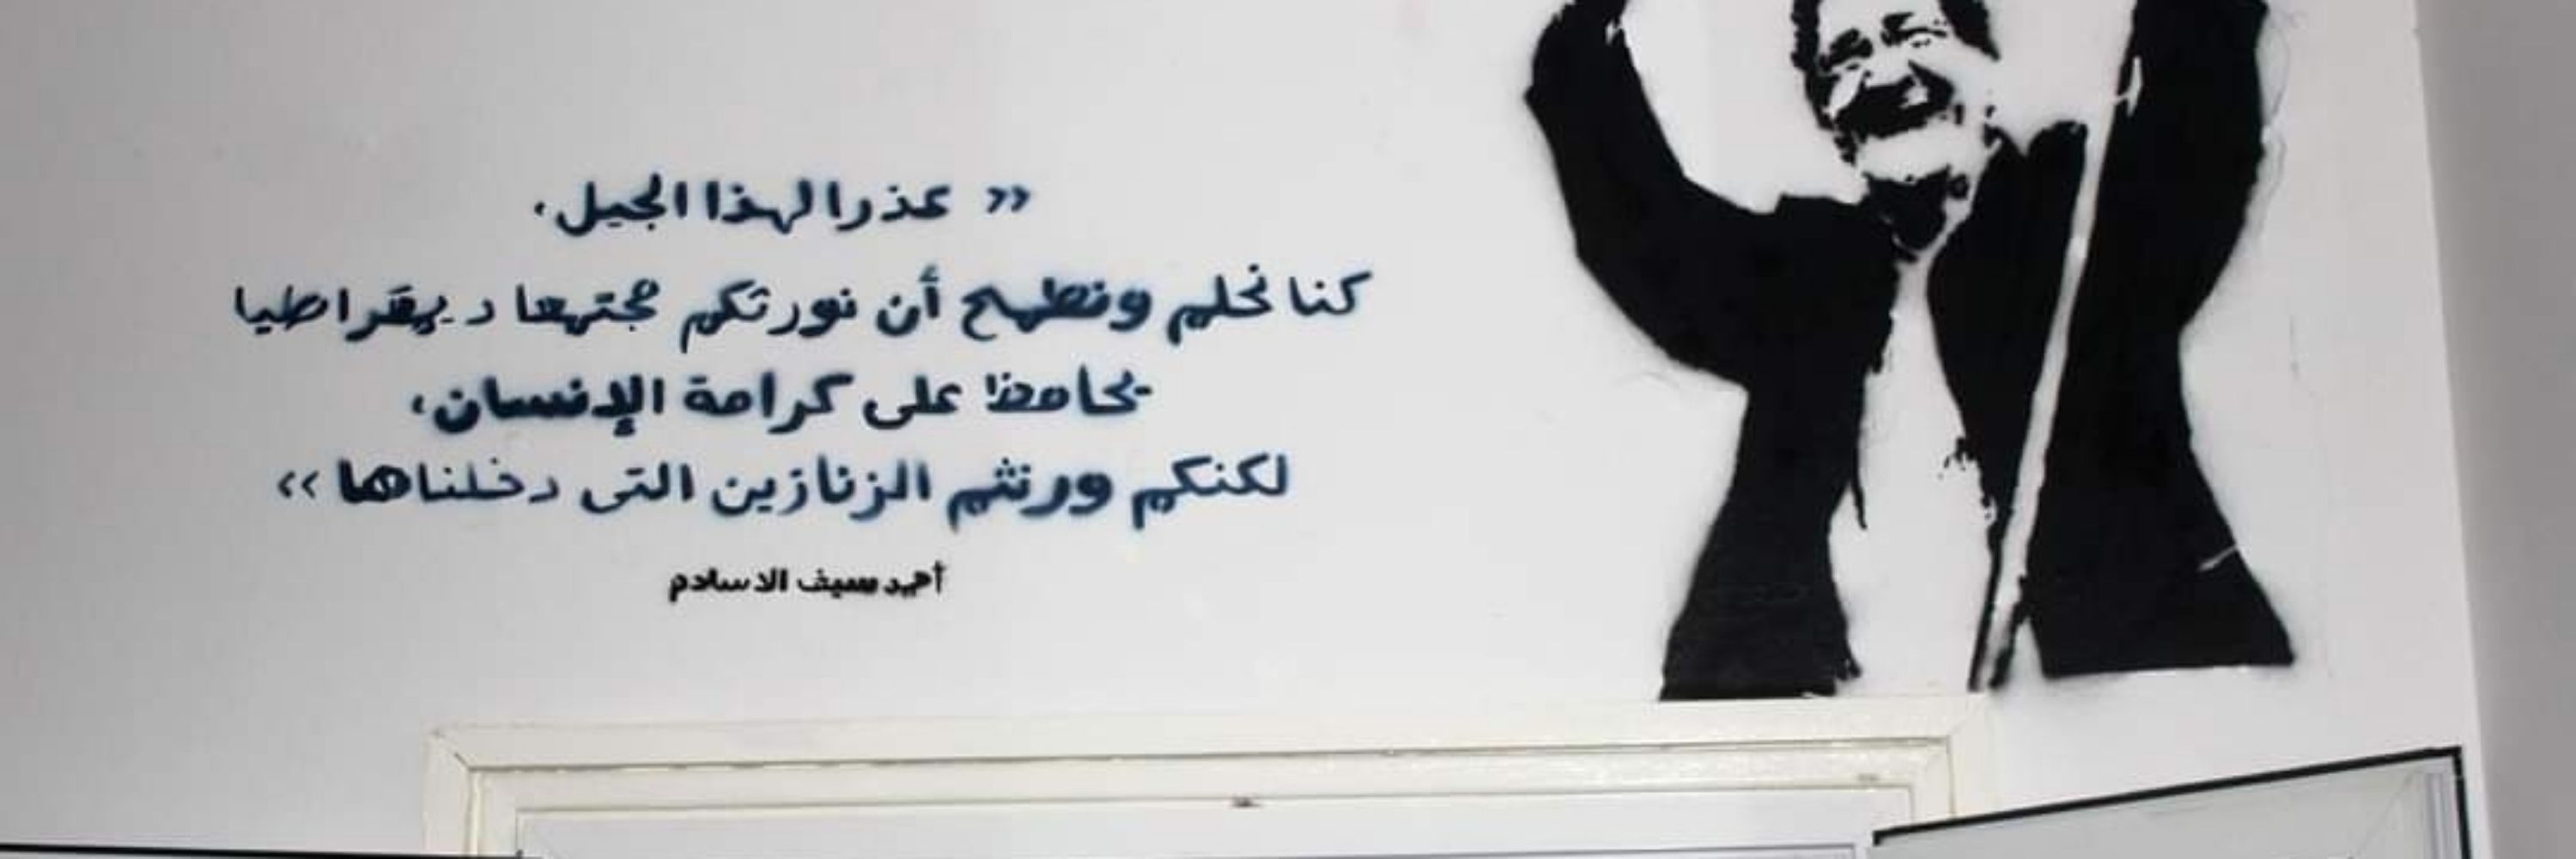 « عذرا لهذا الجيل.
كنا نحلم ونطمح أن نورثكم مجتمعا ديمقراطيا
يحافظ على كرامة الإنسان،
لكنكم ورثتم الزنازين التى دخلناها »
أحمد سيف الاسلام